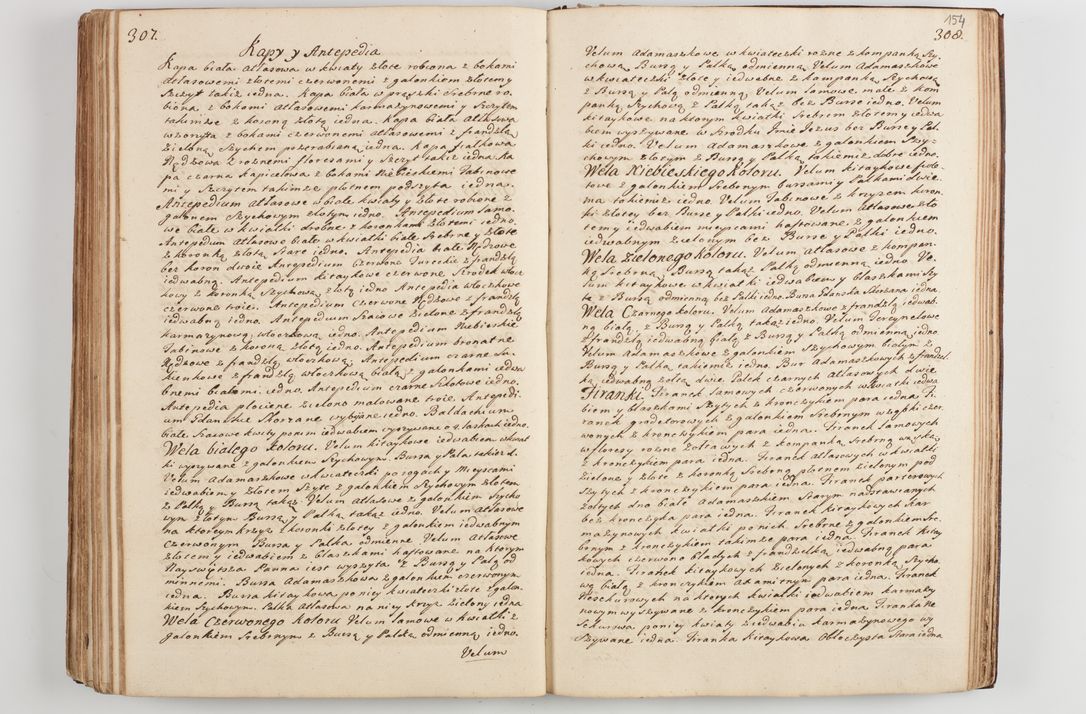 307.
Kapy y Antepedia
Kapa biała Atłasowa w kwiaty złote robiona z bokami
Atłasowemi złotemi czerwonemi z galonkiem złotemy
Szczyt takiż iedna. Kapa biała w prążki srebrne ro-
biona, z bokami Atłasowemi karmazynowemi y Szczytem
takimże z koroną złotą iedna. Kapa biała Atłasowa
wzorzysta z bokami czerwonemi atłasowemi z frandzlą
zieloną Szychem przerabianą iedna. Kapa fiałkowa
Rądzowa z roznemi floresami y Szczyt takiż iedna. Ka
pa czarna kapicelowa z bokami Niebieskiemi Tabinowe
mi y Szczytem takimże płotnem podszyta iedna.
Antepedium Atłasowe w białe kwiaty y złote robione z
galonem Szychowym złotym iedno. Antepedium lamo
we białe w kwiatki drobne z koronkami złotemi iedno.
Antepedium Atłasowo białe w kwiatki białe Srebrne y złote
z koronką złotą Stare iedno. Antepedia białe Rądzowe
bez koron dwoie. Antepedium czerwone Tureckie z frandzlą
iedwabną. Antepedium kitaykowe czerwone Szrodek włocz
kowy z koronką Szychową złotą iedno Antepedia włoczkowe
czerwone troie. Antepedium czerwone Rądzowe z frandzlą
iedwabną iedno. Antepedium Sraiowe zielone z frandzlą
karmazynową włoczkową iedno. Antepedium Niebieskie
Tabinowe z koroną złotą iedno. Antepedium brunatne
Rądzowe z frandzlą włoczkową. Antepedium czarne Su-
kienkowe z frandzlą włoczkową białą y galonkami iedwa
bnemi białemi iedno. Antepedium czarne Szkotowe iedno.
Antepedia płocienne zielono malowane troie. Antepedi-
um Gdanskie Skorzane wybijane iedno. Baldachium
białe Sraiowe kwiaty ponim iedwabiem wyszywane o 4 laskach iedno.
Wela białego koloru. Velum kitaykowe iedwabiem w kwiat
ki wyszywane z galonkiem Szychowym. Bursa y Pala takież.
Velum Adamaszkowe w kwiateczki po rogach y Mieyscami
iedwabiem y złotem Szyte z galonkiem Szychowym złotem
z Palką y Bursą takąż. Velum Atłasowe z galonkiem Szycho
wym złotym Bursą y Palką takąż iedno. Velum atłasowe
na ktorym krzyż z koronki złotey z galonkiem iedwabnym
czerwonym Bursa y Palka odmienne Velum Atłasowe
złotem y iedwabiem z blaszkami haftowane na ktorym
Nayswiętsza Panna iest wyszyta z Bursą y Palką od
mienemi. Bursa Adamaszkowa z galonkiem czerwonym
iedna. Bursa kitaykowa poniey kwiateczki złote z galon-
kiem Szychowym. Palka Atłasowa na niey krzyż zielony iedna
Wela Czerwonego koloru Velum lamowe w kwiatki z
galonkiem Srebrnym z Bursą y Palką odmienną iedno.
Velum
154
308.
Velum Adamaszkowe w kwiateczki rozne z kompanką Szy
chową Bursą y Palką odmienną. Velum Adamaszkowe
w kwiateczki złote y iedwabne z kompanką Szychową
z Bursą y Palą odmienną Velum lamowe małe z kom
panką Szychową z Palką takąż bez Burse iedno. Velum
kitaykowe na ktorym kwiatki srebrem złotem y iedwa
biem wyszywane w Srodku Imie Jezus bez Burse y Pal
ki iedno. Velum Adamaszkowe z galonkiem Szy-
chowym złotym z Bursą y Palką takiemiż dobre iedno.
Wela Niebieskiego koloru. Velum kitaykowe fiole-
towe z galonkiem Srebrnym bursami y Palkami dwie
ma takiemiż iedno. Velum Tabinowe z krzyżem koron
ki złotey bez Burse y Palki iedno. Velum atłasowe zło
temy iedwabiem mieyscami haftowane z galonkiem
iedwabnym zielonym bez Burse y Palki iedno.
Wela Zielonego koloru. Velum Atłasowe z kompan-
ką Srebrną y Bursą takąż Palką odmienną iedno Ve-
lum kitaykowe w kwiatki iedwabiem y blaszkami Szy
te z Bursą odmienną bez Palki iedno. Bursa Gdanska Skorzana iedna.
Wela Czarnego koloru. Velum Adamaszkowe z frandzlą iedwab-
ną białą, z Bursą y Palką takąż iedno. Velum Tercynelowe
z frandzlą iedwabną białą z Bursą y Palką odmienną iedno
Velum Adamaszkowe z galonkiem Szychowym białym z
Bursą y Palką takiemiż iedno. Bur Adamaszkowych z frandzl
ką iedwabną żołtą dwie. Palek czarnych Atłasowych dwie
Firanki. Firanek lamowych czerwonych w kwiatki iedwa
biem y blaszkami Szytych z kronczykiem para iedna. Fi-
ranek grodetorowych z galonkiem Srebrnym w ząbki czer
wonych z kronczykiem para iedna. Firanek lamowych
w floresy rozne żołtawych z kompanką Srebrną wąską
z kronczykiem para iedna. Firanek Atłasowych w kwiatki
zielone y złote z koronką Srebrną płotnem zielonym pod
szytych z kronczykiem para iedna. Firanek parterowych
żołtych dno białe Adamaszkiem Starym nadstawianych
bez kronczyka para iedna. Firanek kitaykowych kar
mazynowych kwiatki ponich Srebrne z galonkiem Sre-
brnym z kronczykiem takimże para iedna. Firanek kitay
kowych czerwono bladych z frandzelką iedwabną para
iedna. Firanek kitaykowych zielonych z koronką Szycho
wą białą z kronczykiem Axamitnym para iedna. Firanek
Meszkurowych na ktorych kwiatki iedwabiem karmazy
nowym wyszywane z kronczykiem para iedna. Firanka Me
szkurowa poniey kwiaty z iedwabiu karmazynowego wy
szywane iedna. Firanka kitaykowa Obłoczysta Stara iedna